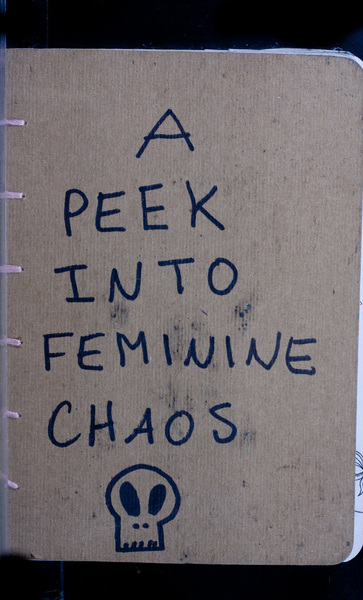 A
PEEK
INTO
FEMININE
CHAOS